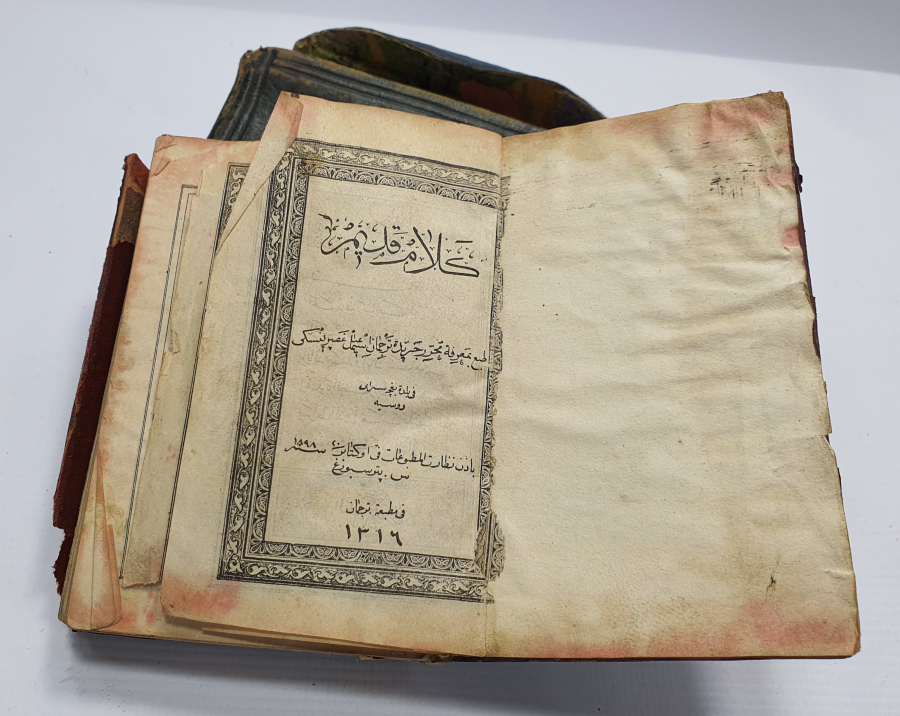 كلام قديم
طبع بمعرفة محرر جريدة ترجمان اسمعيل غصپرينسكى
فى بلدة بغچه سراى
روسيه
باذن نظارت المطبوعات فى اوكتابر ٢٠ سنه ١٥٩٨
س. پترسبورغ
فى مطبعة ترجمان
١٣١٦